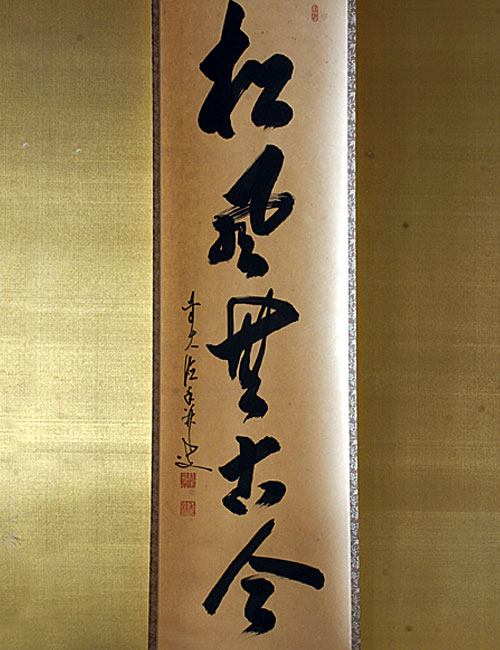 松風無古今
前大徳